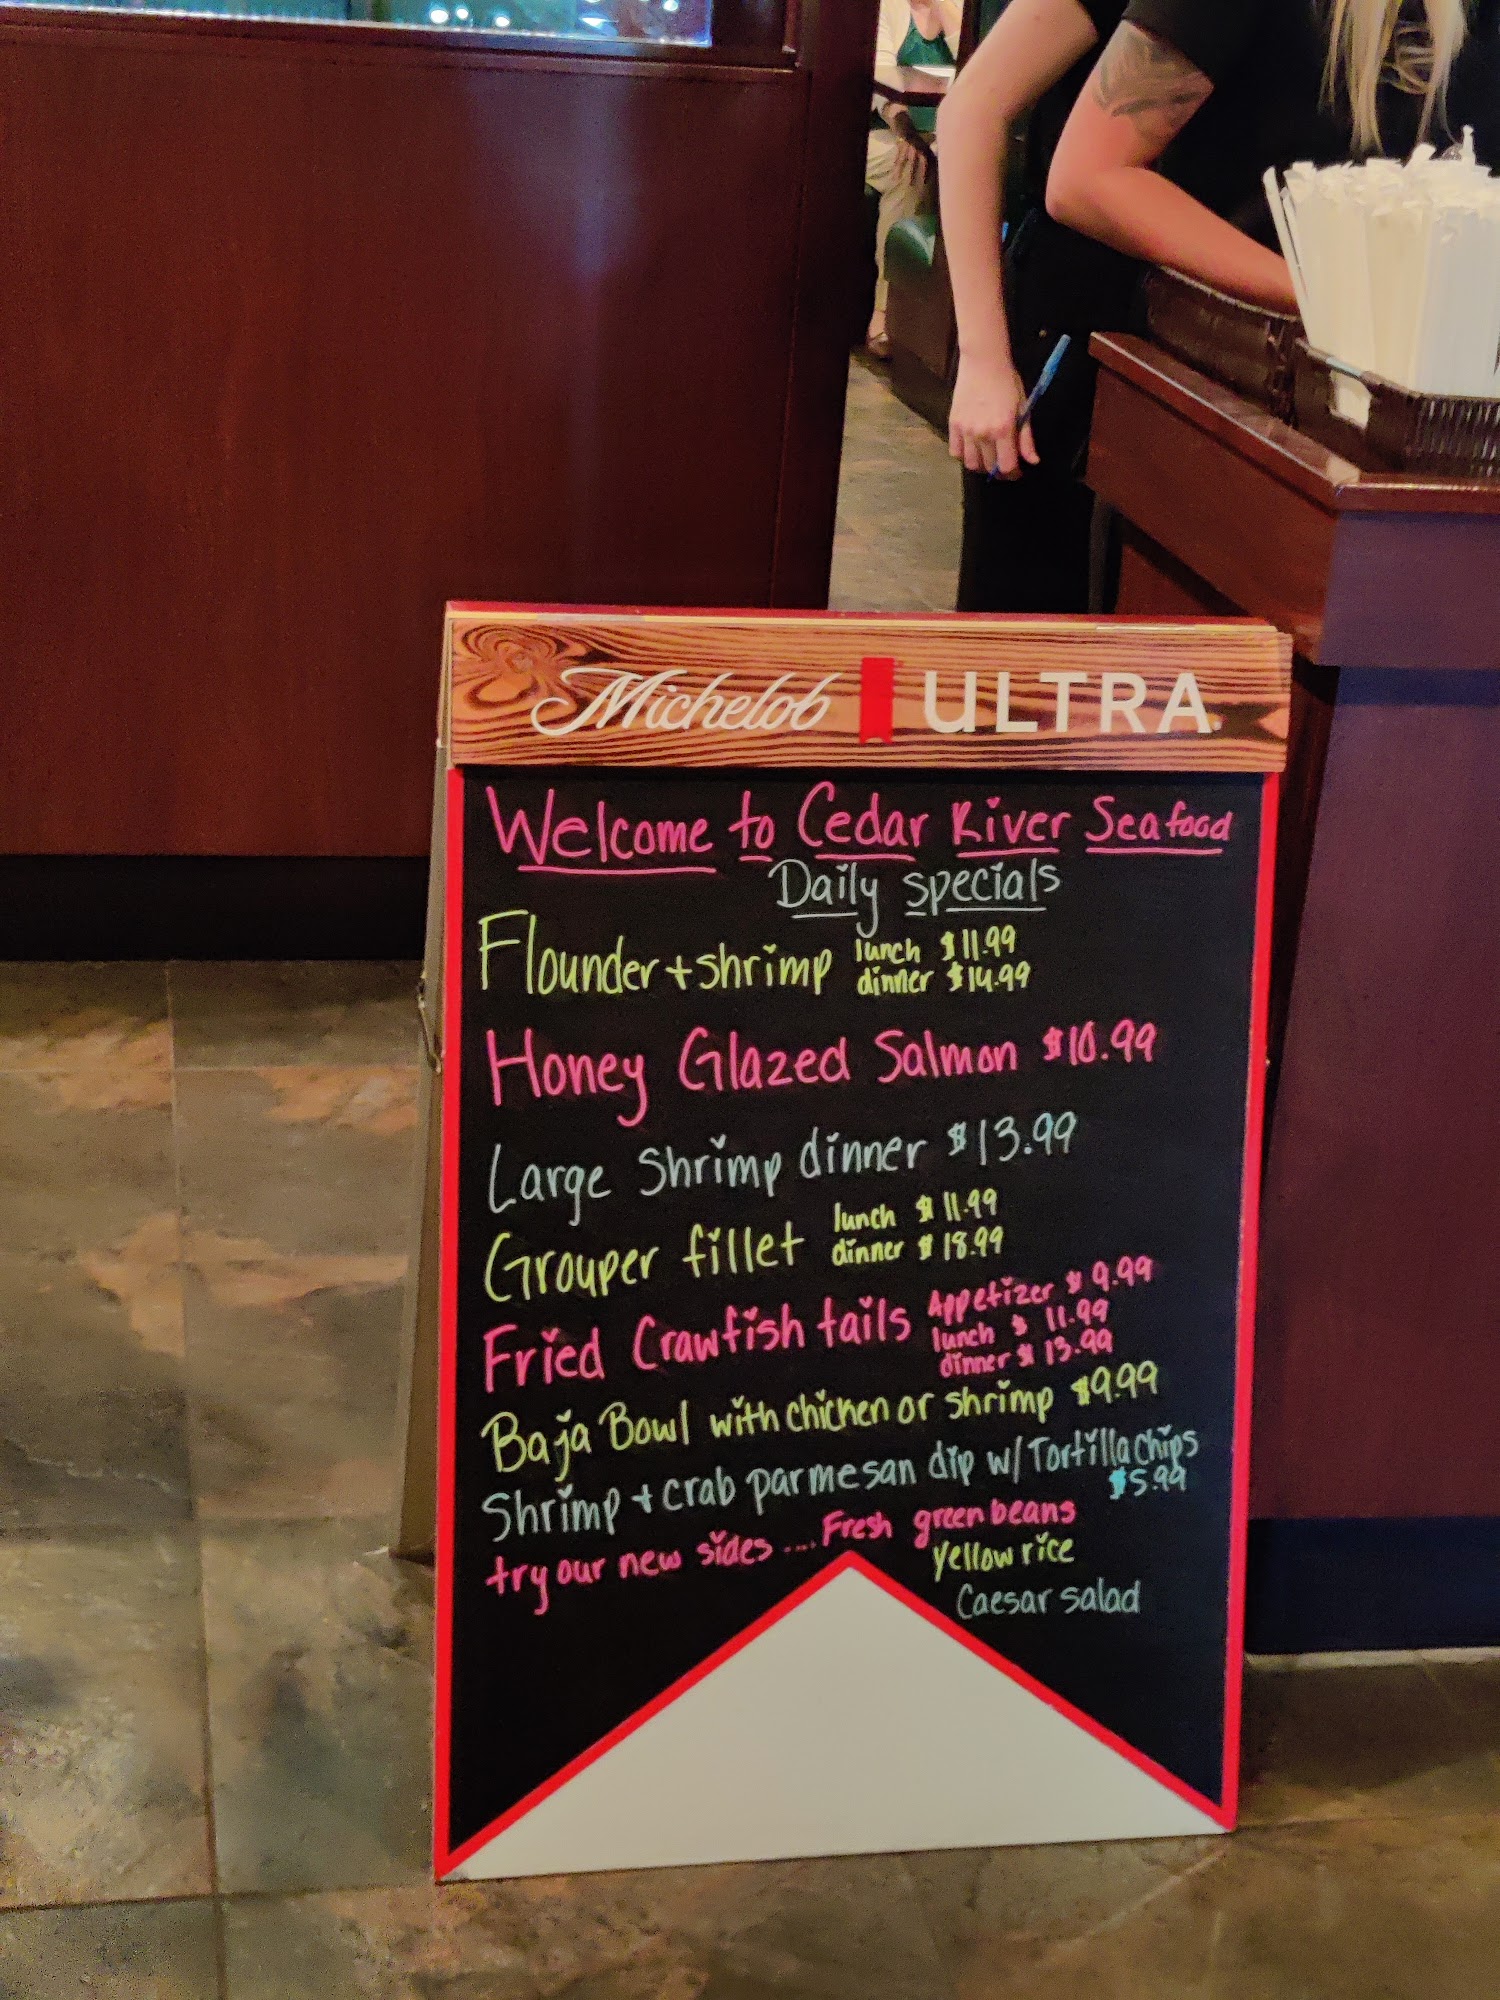 Michelob ULTRA
Welcome to Cedar River Seafood
Daily specials
Flounder + shrimp lunch $11.99
dinner $14.99
Honey Glazed Salmon $10.99
Large Shrimp dinner $13.99
Grouper fillet lunch $11.99
dinner $18.99
Fried Crawfish tails Appetizer $9.99
lunch $11.99
dinner $13.99
Baja Bowl with chicken or shrimp $9.99
Shrimp + crab parmesan dip w/ Tortilla chips
$5.99
try our new sides .... Fresh green beans
Yellow rice
Caesar salad